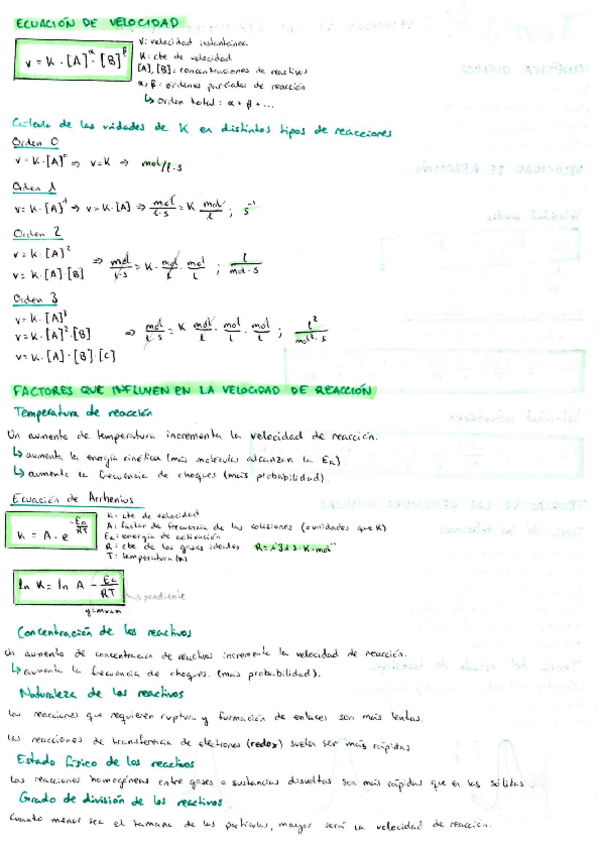 ECUACIÓN DE VELOCIDAD
v = K · [A]^α · [B]^β
V: velocidad instantánea
K: cte de velocidad
[A], [B]: concentraciones de reactivos
α, β: órdenes parciales de reacción
↳ Orden total: α + β + ...
Cálculo de las unidades de K en distintos tipos de reacciones
Orden 0
v = K · [A]^0 ⇒ v = K ⇒ mol/l·s
Orden 1
v = K · [A]^1 ⇒ v = K · [A] ⇒ mol/l·s = K mol/l ; s^-1
Orden 2
v = K · [A]^2
v = K · [A] · [B]
⇒ mol/l·s = K · mol/l · mol/l ; l/mol·s
Orden 3
v = K · [A]^3
v = K · [A]^2 · [B]
v = K · [A] · [B] · [C]
⇒ mol/l·s = K mol/l · mol/l · mol/l ; l^2/mol^2·s
FACTORES QUE INFLUYEN EN LA VELOCIDAD DE REACCIÓN
Temperatura de reacción
Un aumento de temperatura incrementa la velocidad de reacción.
↳ aumenta la energía cinética (más moléculas alcanzan la Ea)
↳ aumenta la frecuencia de choques (más probabilidad)
Ecuación de Arrhenius
K = A · e^-Ea/RT
K: cte de velocidad
A: factor de frecuencia de las colisiones (unidades que K)
Ea: energía de activación
R: cte de los gases ideales
T: temperatura (K)
ln K = ln A - Ea/RT
→ pendiente
Concentración de los reactivos
Un aumento de concentración de reactivos incrementa la velocidad de reacción.
↳ aumenta la frecuencia de choques. (más probabilidad).
Naturaleza de los reactivos
Las reacciones que requieren ruptura y formación de enlaces son más lentas.
Las reacciones de transferencia de electrones (redox) suelen ser más rápidas
Estado físico de los reactivos
Las reacciones homogéneas entre gases o sustancias disueltas son más rápidas que en los sólidos
Grado de división de los reactivos.
Cuanto menor sea el tamaño de las partículas, mayor será la velocidad de reacción.